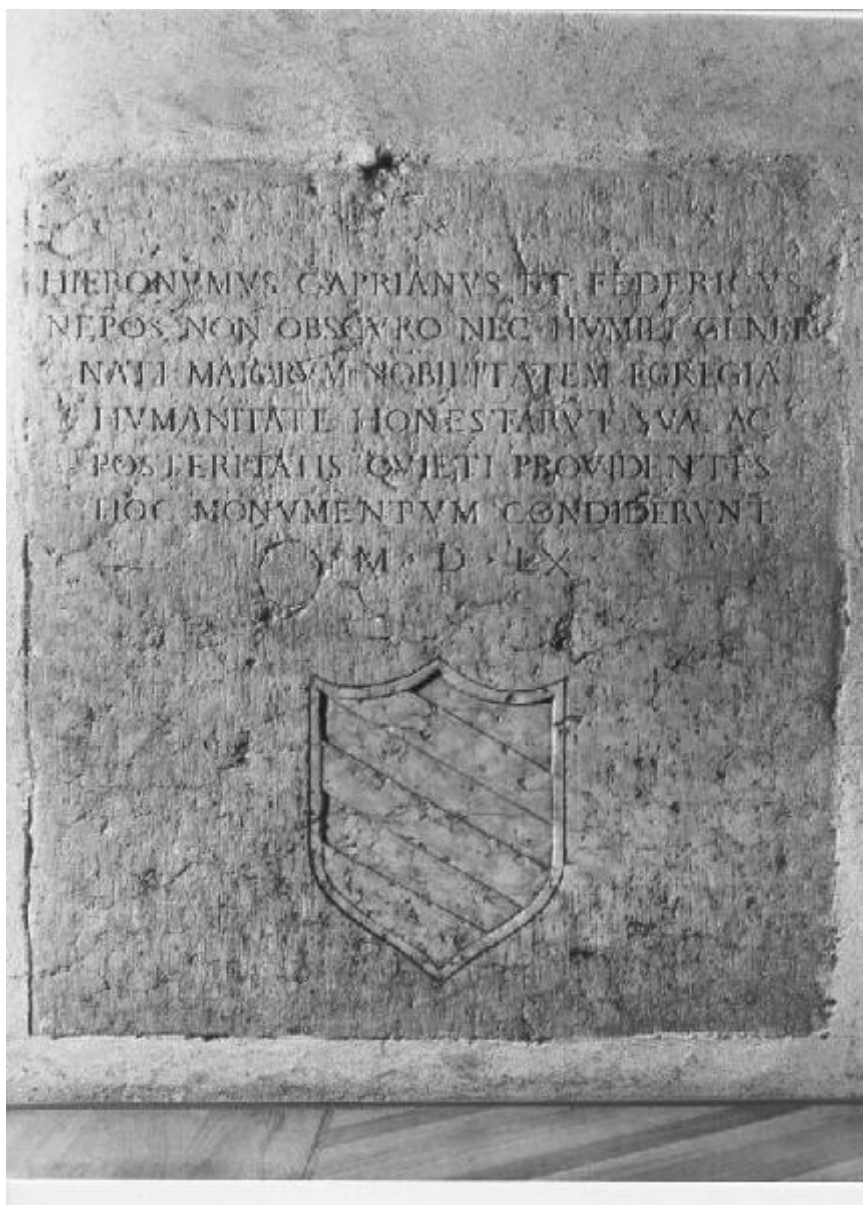 HIERONVMVS CAPRIANVS ET FEDERICVS
NEPOS NON OBSCVRO NEC HVMILI GENERE
NATI MAIORVM NOBILITATEM EGREGIA
HVMANITATE HONESTARVT SVAE AC
POSTERITATIS QVIETI PROVIDENTES
HOC MONVMENTVM CONDIDERVNT
M · D · LX